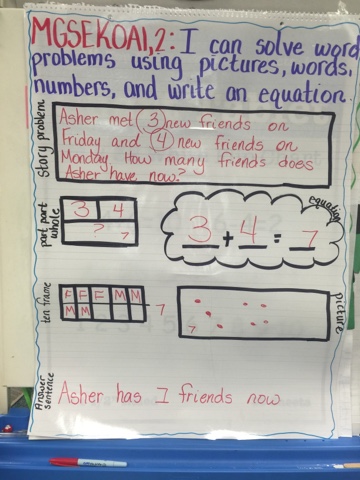 MGSEKOA1,2: I can solve word
problems using pictures, words,
numbers, and write an equation.
story problem
Asher met 3 new friends on
Friday and 4 new friends on
Monday. How many friends does
Asher have now?
part part
whole
3 4
? 7
equation
3 + 4 = 7
ten frame
F F F M M
M M
7
picture
7
Answer
sentence
Asher has 7 friends now